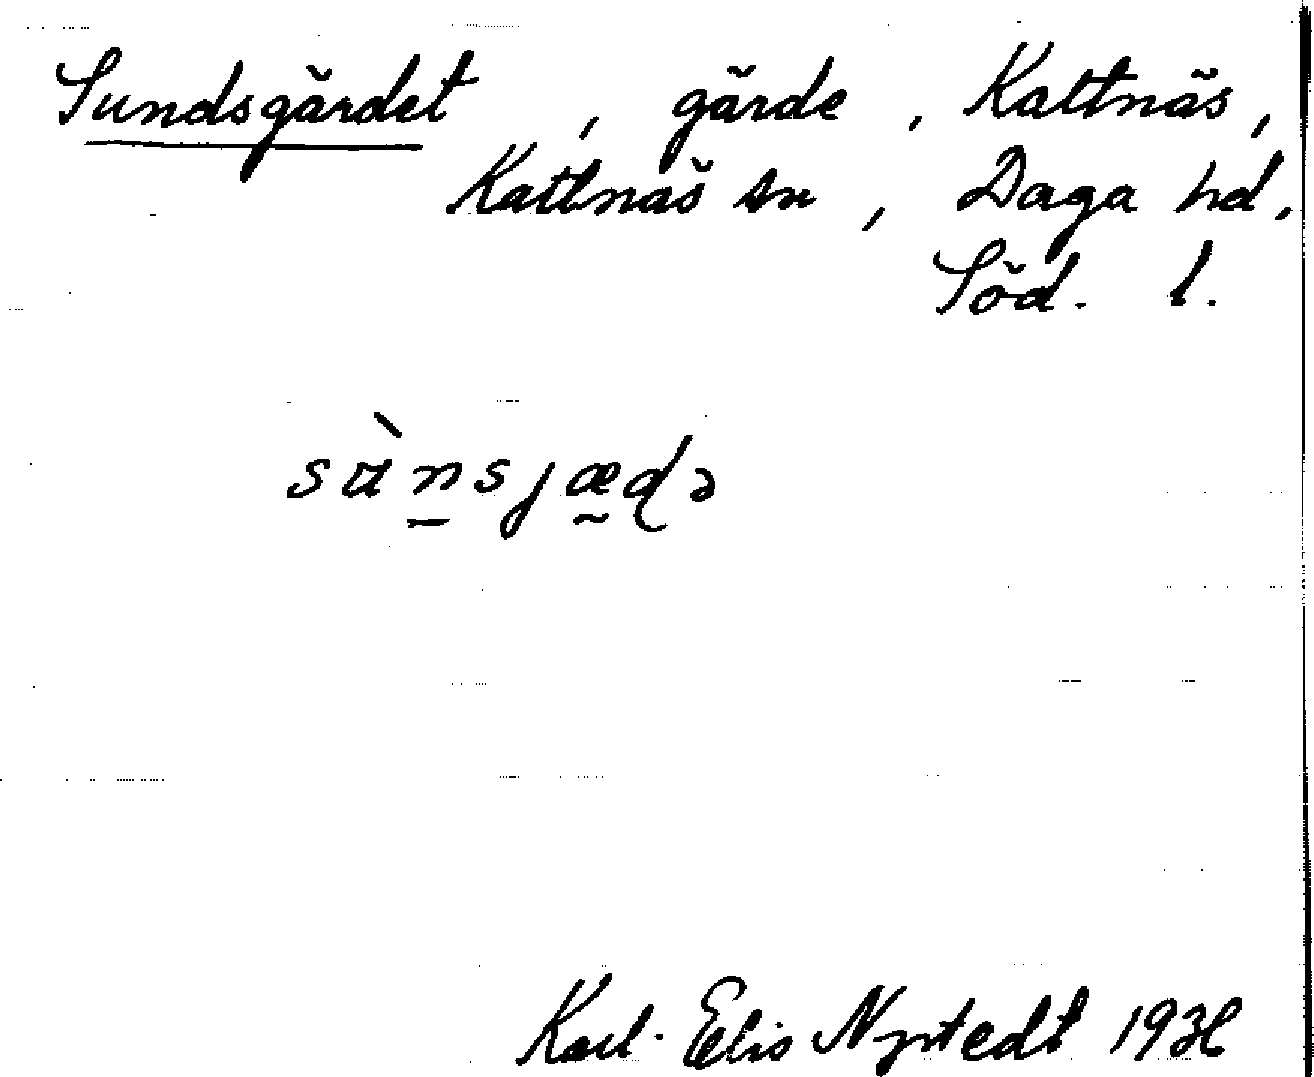 Sundsgärdet, gärde, Kattnäs,
Kattnäs sn, Daga hd,
Söd. l.
sɯ̀n̲sjæ̰ɖə
Karl-Elis Nystedt 1936